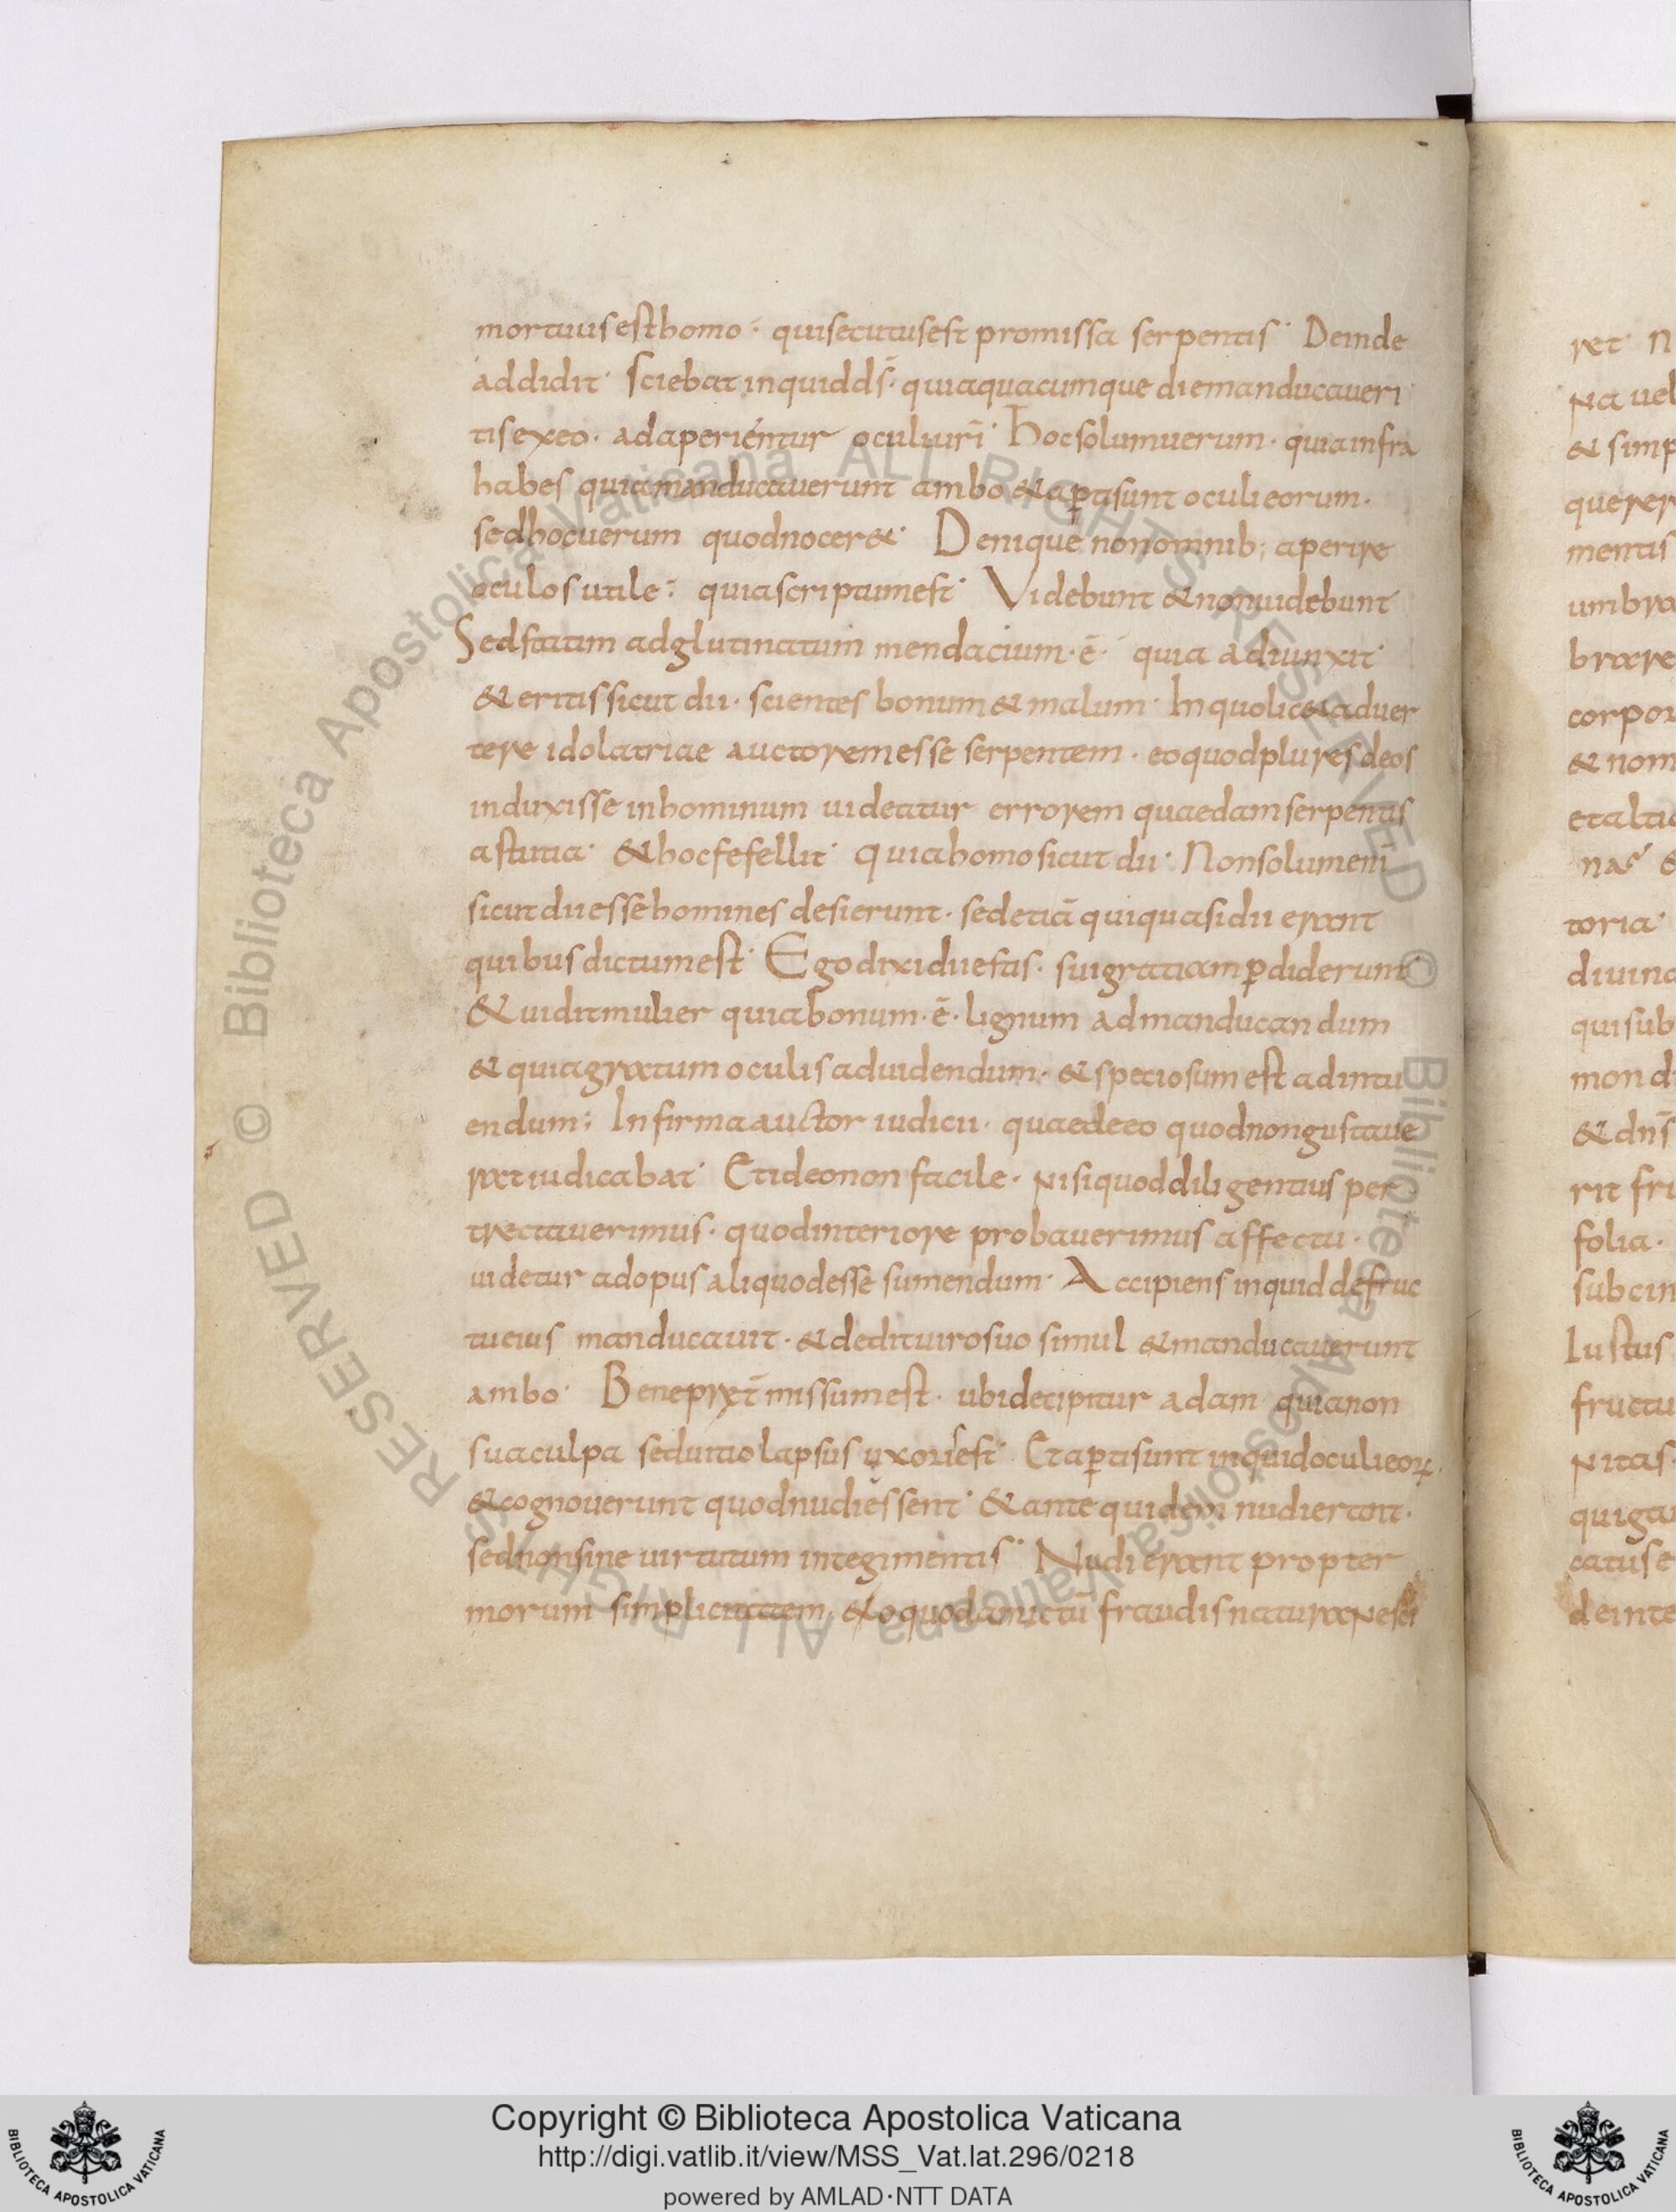 mortuus est homo· qui secutus est promissa serpentis· Deinde
addidit· Sciebat inquid d̄s̄· quia quacumque die manducaueri
tis ex eo· adaperientur oculi ur̄i· Hoc solum uerum· quia infra
habes quia manducauerunt ambo & ap̲ti sunt oculi eorum·
sed hoc uerum quod nocer&· Denique non omnib; aperire
oculos utile· quia scriptum est· Videbunt & non uidebunt
Sed statim adglutinatum mendacium·ē· quia adiunxit
& eritis sicut dii· scientes bonum & malum· In quo lic& aduer
tere idolatriae auctorem esse serpentem· eo quod plures deos
induxisse in hominum uideatur errorem quaedam serpentis
astutia· & hoc fefellit· quia homo sicut dii· Non solum eni
sicut dii esse homines desierunt· sed etiā qui quasi dii erant
quibus dictum est· Ego dixi dii estis· sui gratiam p̲diderunt
& uidit mulier quia bonum·ē· lignum ad manducandum
& quia gratum oculis ad uidendum· & speciosum est ad intu
endum; Infirma auctor iudicii· quae de eo quod non gustaue
rat iudicabat· Et ideo non facile· nisi quod diligentius per
trectauerimus· quod interiore probauerimus affectu·
uidetur ad opus aliquod esse sumendum· Accipiens inquid de fruc
tu eius manducauit· & dedit uiro suo simul & manducauerunt
ambo· Bene praet̄missum est· ubi decipitur adam quia non
sua culpa sed uitio lapsus uxoris est· Et ap̲ti sunt inquid oculi eoꝝ·
& cognouerunt quod nudi essent· & ante quidem nudi erant·
sed non sine uirtutum integimentis· Nudi erant propter
morum simplicitatem· & eo quod amictū fraudis natura nesci
ret· N
na uel
& simp
querer
mentis
umbra
brare
corpor
& nom
et altio
nas
toria·
diuina
qui sub
mond
& dn̄s
rit fru
folia·
subcin
Iustus
fructu
nitas·
qui ga
catus e
deinte
© Biblioteca Apostolica Vaticana ALL RIGHTS RESERVED © Biblioteca Apostolica Vaticana ALL RIGHTS RESERVED
Copyright © Biblioteca Apostolica Vaticana
http://digi.vatlib.it/view/MSS_Vat.lat.296/0218
powered by AMLAD·NTT DATA
BIBLIOTECA APOSTOLICA VATICANA
BIBLIOTECA APOSTOLICA VATICANA